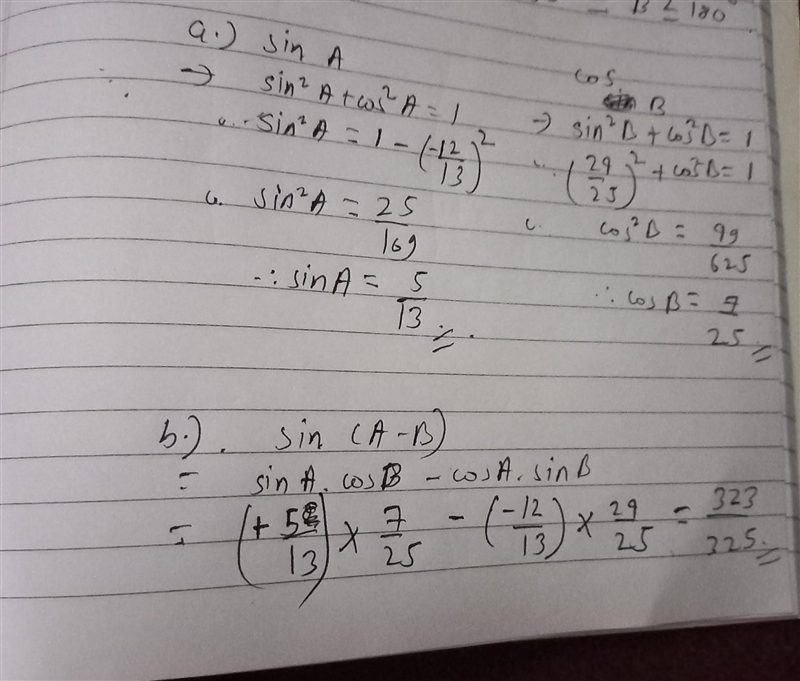 B ≤ 180°
a.) sin A
→ sin²A + cos²A = 1
∴ sin²A = 1 - (-12/13)²
∴ sin²A = 25/169
∴ sin A = 5/13
cos B
→ sin²B + cos²B = 1
∴ (29/25)² + cos²B = 1
∴ cos²B = 49/625
∴ cos B = 7/25
b.). sin (A - B)
= sin A . cos B - cos A . sin B
= (+5/13) × 7/25 - (-12/13) × 29/25 = 323/325